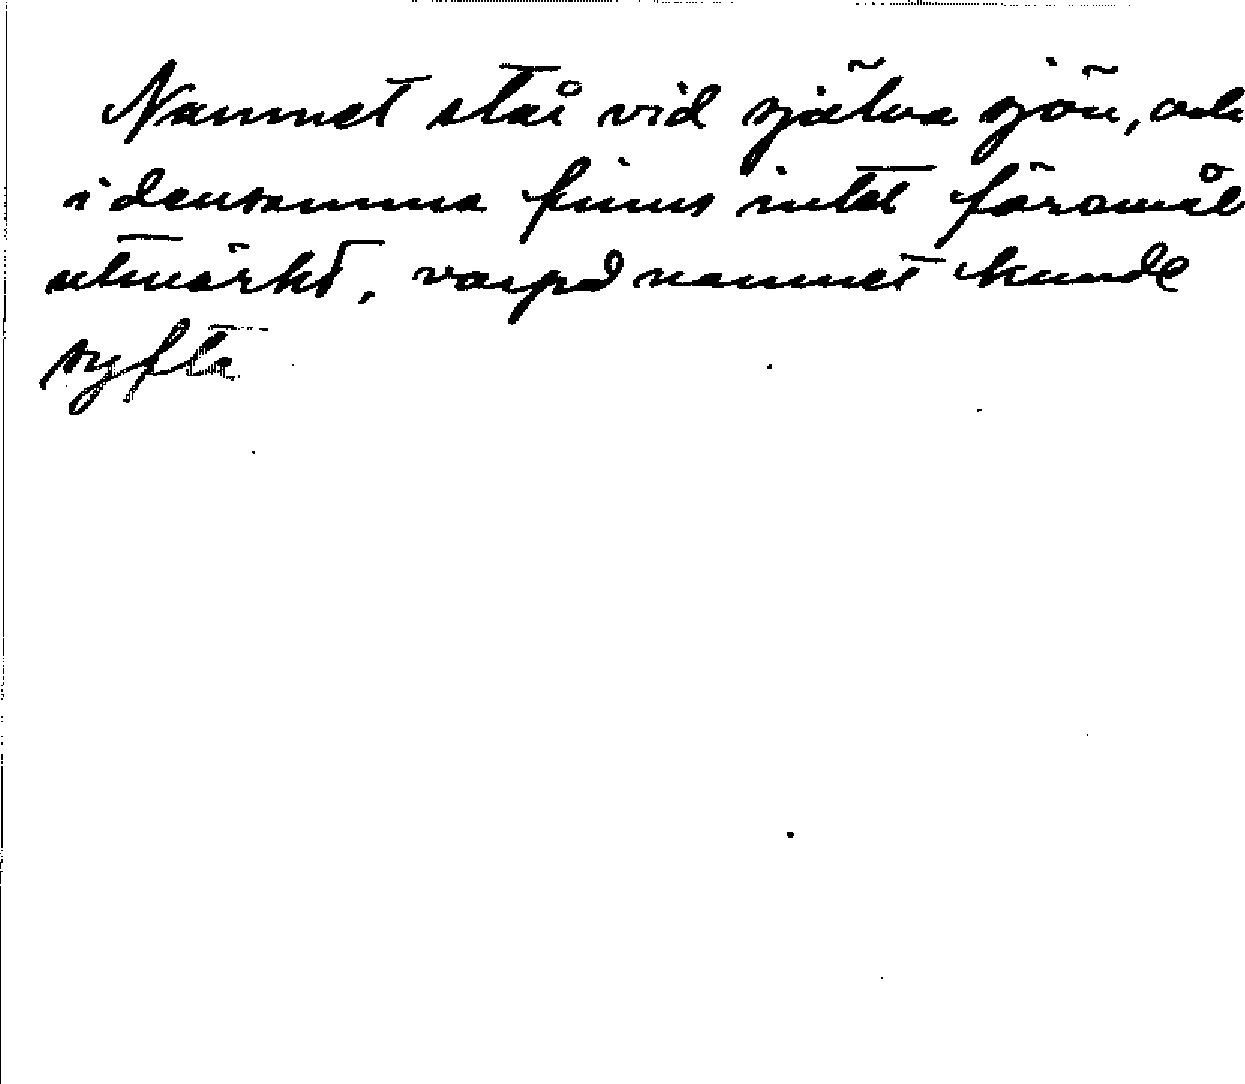 Namnet står vid själva sjön, och
i densamma finns intet föremål
utmärkt, varpå namnet kunde
syfta